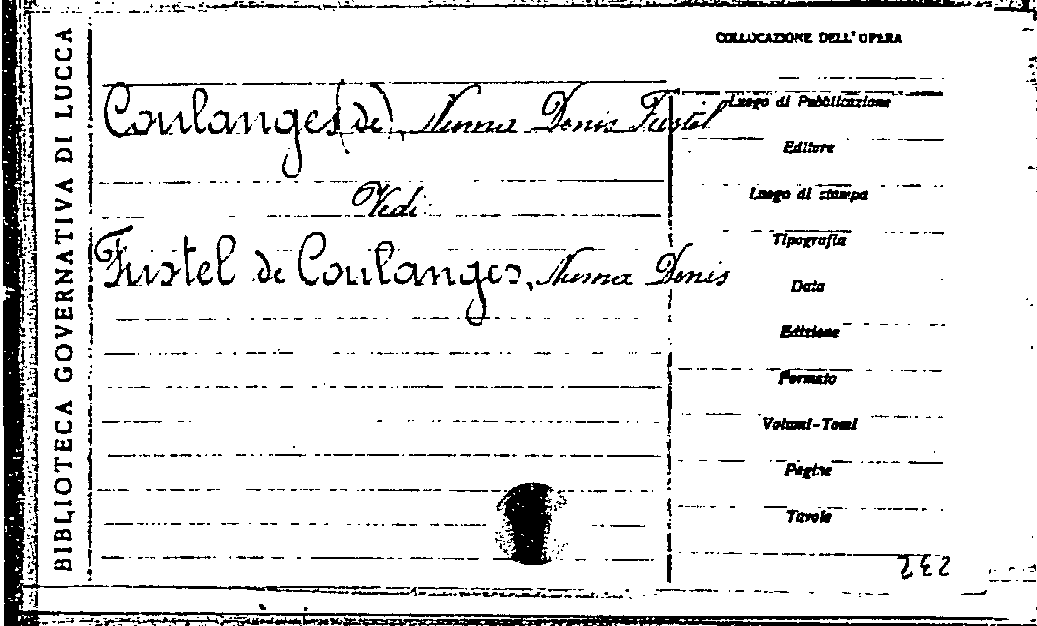 BIBLIOTECA GOVERNATIVA DI LUCCA
COLLOCAZIONE DELL'OPERA
Coulanges (de), Numa Denis Fustel
Vedi
Fustel de Coulanges, Numa Denis
Luogo di Pubblicazione
Editore
Luogo di stampa
Tipografia
Data
Edizione
Formato
Volumi-Tomi
Pagine
Tavole